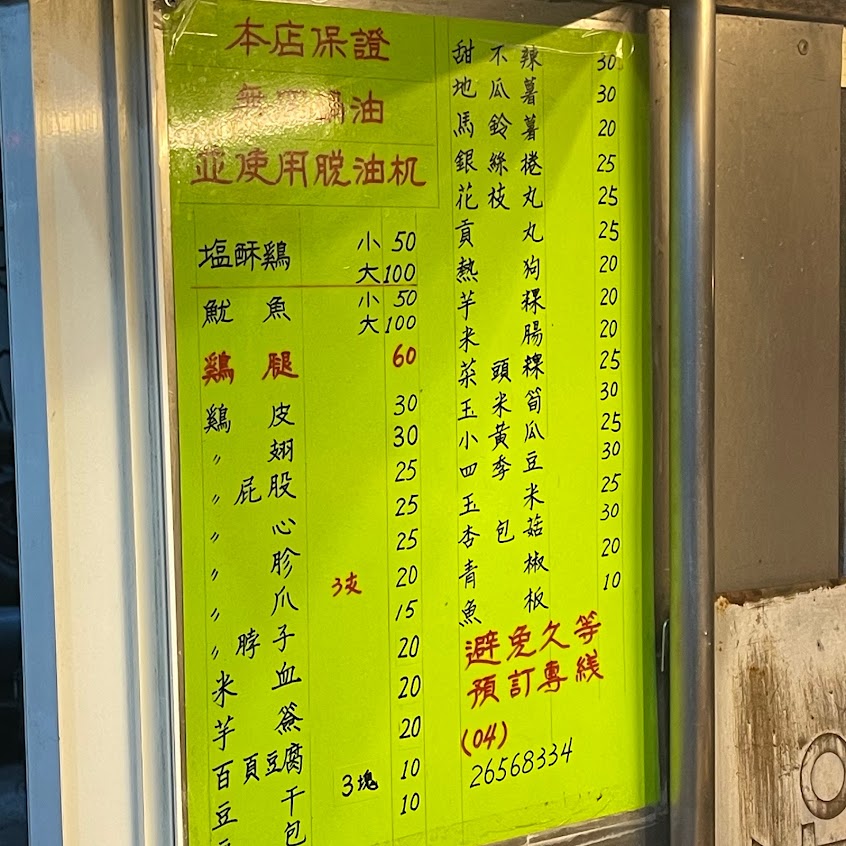 本店保證
油
並使用脱油机
塩酥鷄 小 50
大 100
魷魚 小 50
大 100
鷄腿 60
鷄皮 30
〃翅 30
〃屁股 25
〃心 25
〃胗 25
〃爪 3支 20
〃脖子 15
米血 20
芋簽 20
百頁豆腐 20
豆干 3塊 10
包 10
甜不辣 30
地瓜薯 30
馬鈴薯 20
銀絲捲 25
花枝丸 25
貢丸 25
熱狗 20
芋粿 20
米腸 20
菜頭粿 25
玉米筍 30
小黃瓜 25
四季豆 30
玉米 25
杏包菇 30
青椒 20
魚板 10
避免久等
預訂專綫
(04)
26568334